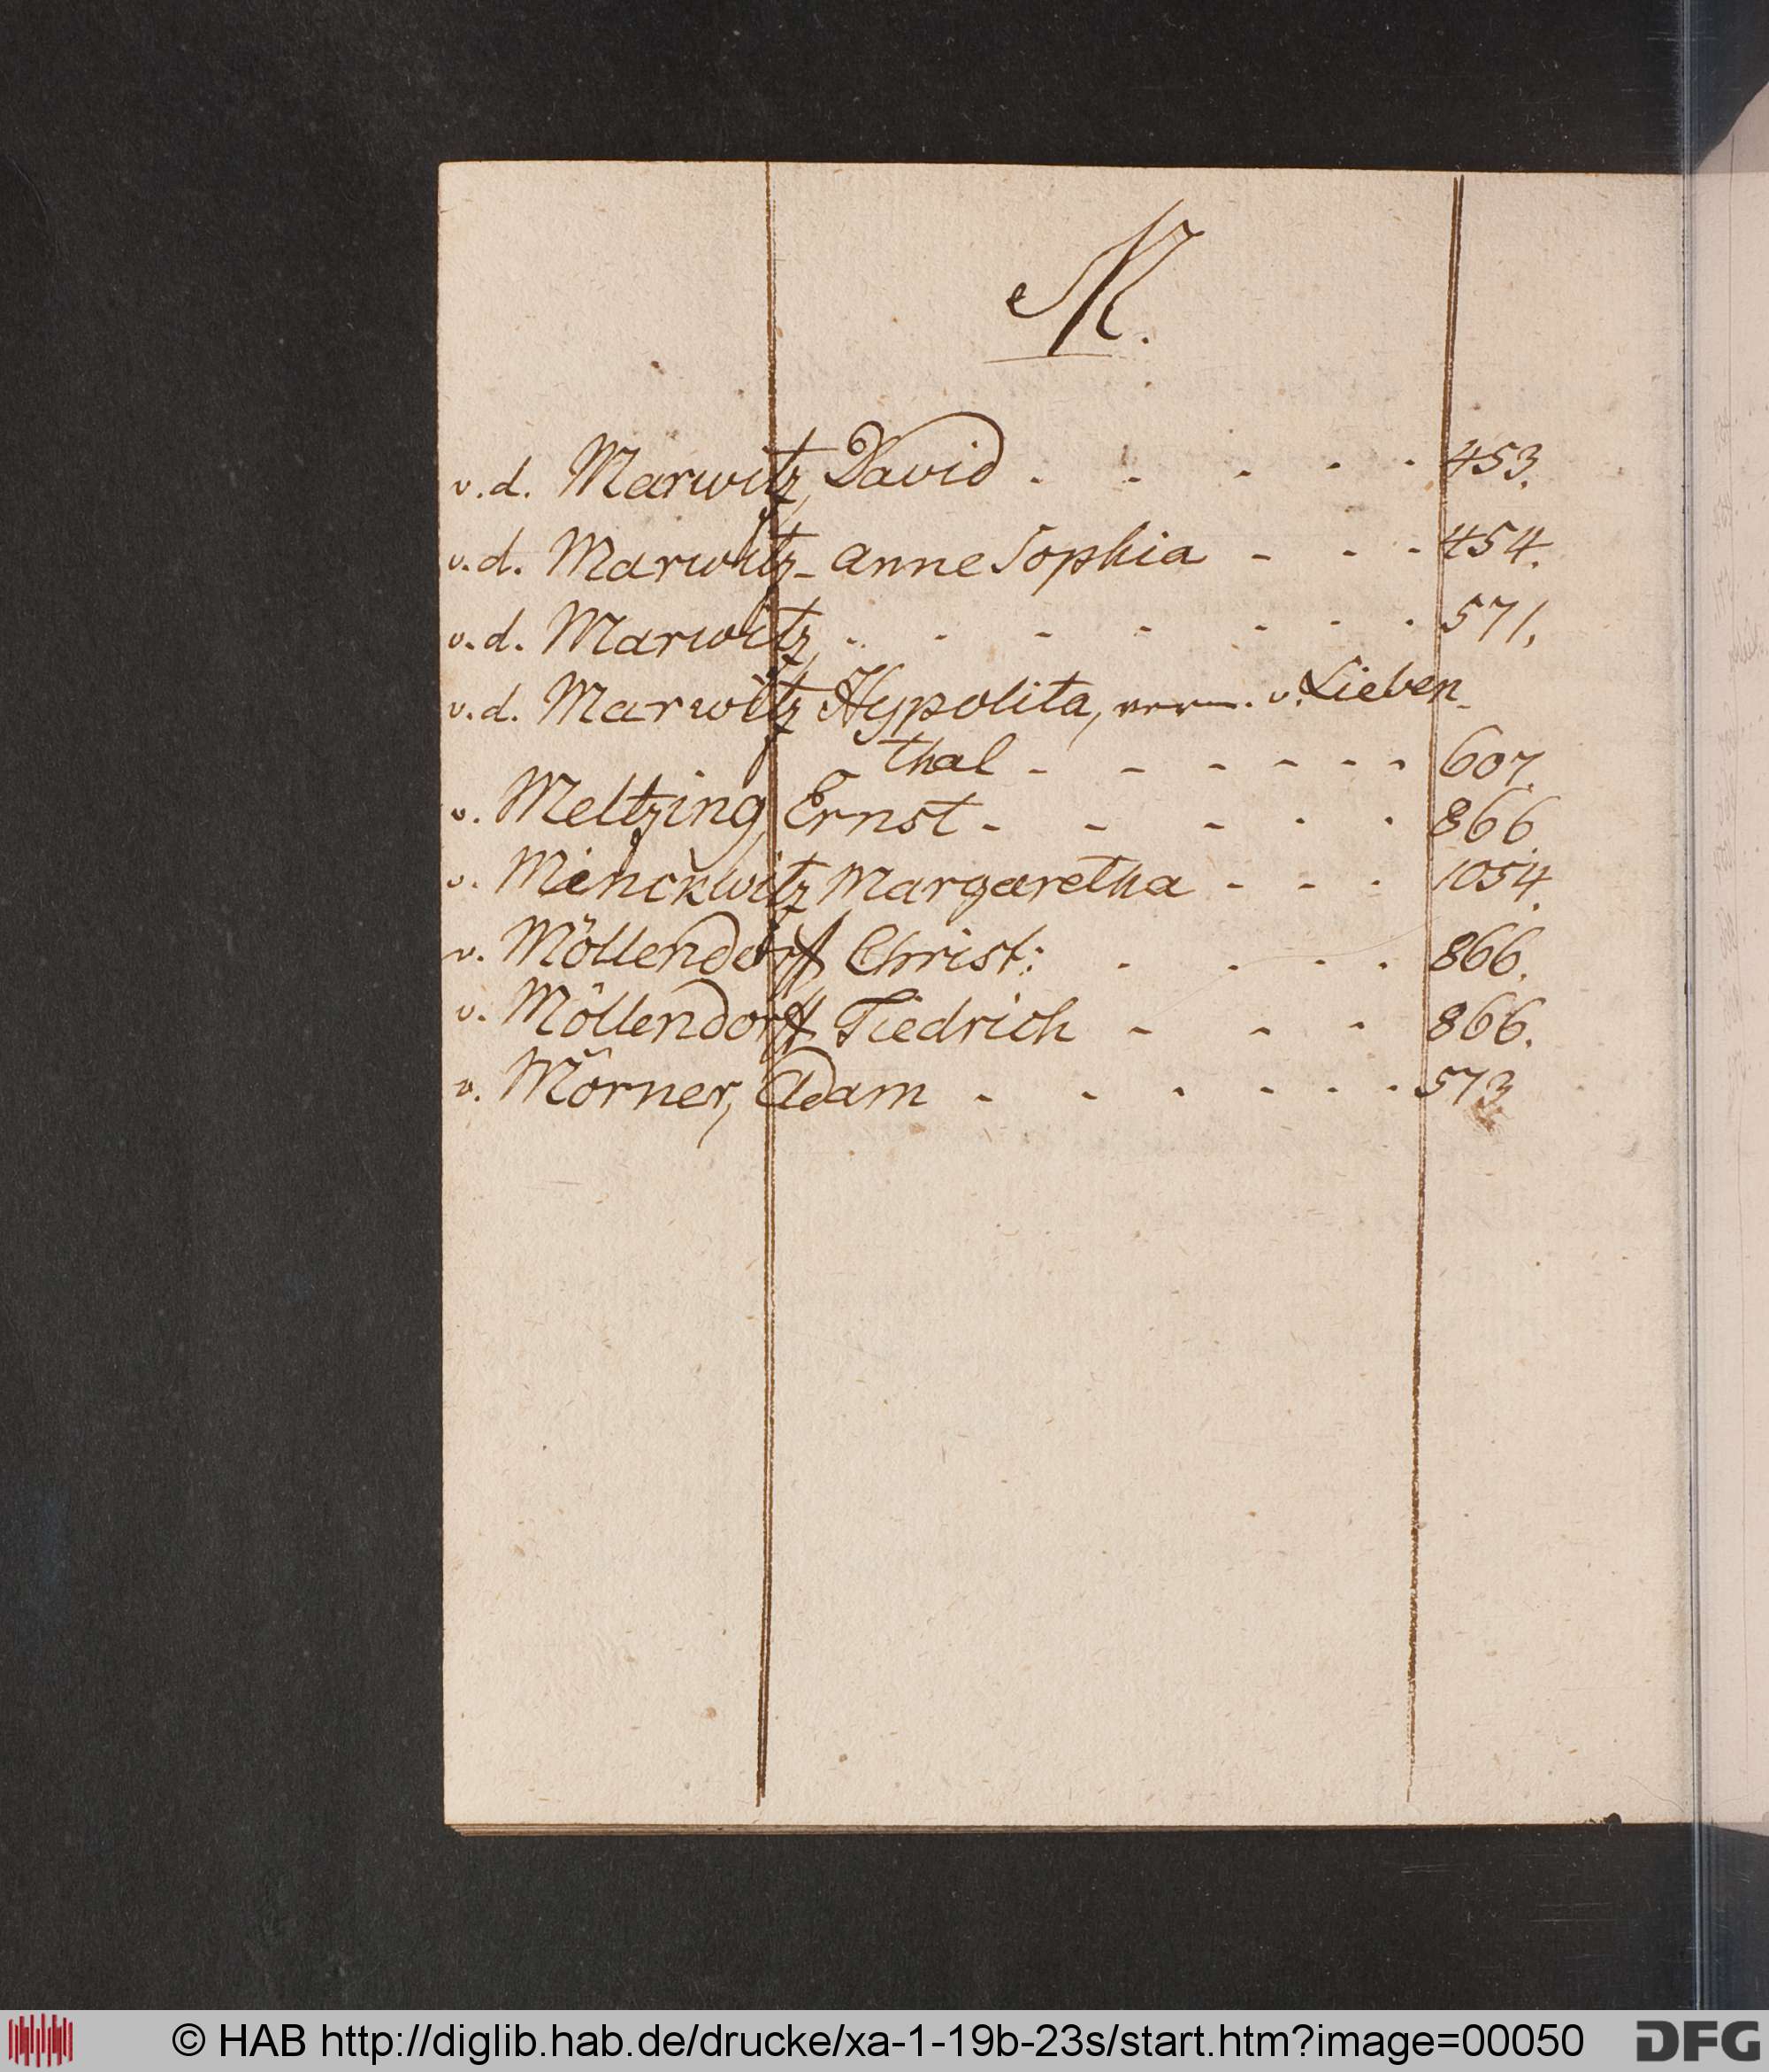 M.
v.d. Marwitz, David - - - - - 453.
v.d. Marwitz - Anne Sophia - - - 454.
v.d. Marwitz, - - - - - - - 571.
v.d. Marwitz Hypolita, verm. v. Lieben-
thal - - - - - - 607.
v. Meltzing, Ernst - - - - - 866.
v. Minckwitz Margaretha - - - 1054.
v. Möllendorff Christ: - - - - 866.
v. Möllendorff Tiedrich - - - 866.
v. Mörner, Adam - - - - - - 573
© HAB http://diglib.hab.de/drucke/xa-1-19b-23s/start.htm?image=00050
DFG